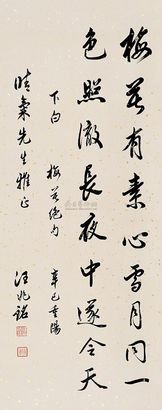 梅花有素心雪月同一
色照澈長夜中遂令天
下白 梅花絕句 辛巳重陽
晴氣先生雅正 汪兆銘